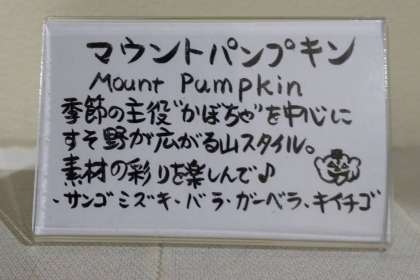 マウントパンプキン
Mount Pumpkin
季節の主役"かぼちゃ"を中心に
すそ野が広がる山スタイル。
素材の彩りを楽しんで♪
・サンゴミズキ・バラ・ガーベラ、キイチゴ